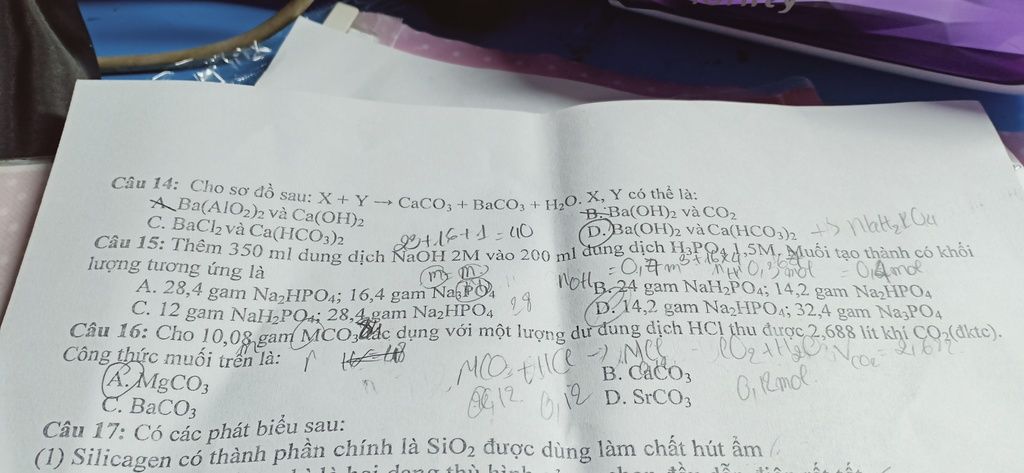 Câu 14: Cho sơ đồ sau: X + Y → CaCO₃ + BaCO₃ + H₂O. X, Y có thể là:
A. Ba(AlO₂)₂ và Ca(OH)₂ B. Ba(OH)₂ và CO₂
C. BaCl₂ và Ca(HCO₃)₂ D. Ba(OH)₂ và Ca(HCO₃)₂
23+16+1=40
Câu 15: Thêm 350 ml dung dịch NaOH 2M vào 200 ml dung dịch H₃PO₄ 1,5M. Muối tạo thành có khối
lượng tương ứng là
A. 28,4 gam Na₂HPO₄; 16,4 gam Na₃PO₄ B. 24 gam NaH₂PO₄; 14,2 gam Na₂HPO₄
C. 12 gam NaH₂PO₄; 28,4 gam Na₂HPO₄ D. 14,2 gam Na₂HPO₄; 32,4 gam Na₃PO₄
Câu 16: Cho 10,08 gam MCO₃ tác dụng với một lượng dư dung dịch HCl thu được 2,688 lít khí CO₂(đktc).
Công thức muối trên là:
MCO₃ + HCl →
A. MgCO₃ B. CaCO₃
0,12 0,12 0,12 mol
C. BaCO₃ D. SrCO₃
Câu 17: Có các phát biểu sau:
(1) Silicagen có thành phần chính là SiO₂ được dùng làm chất hút ẩm